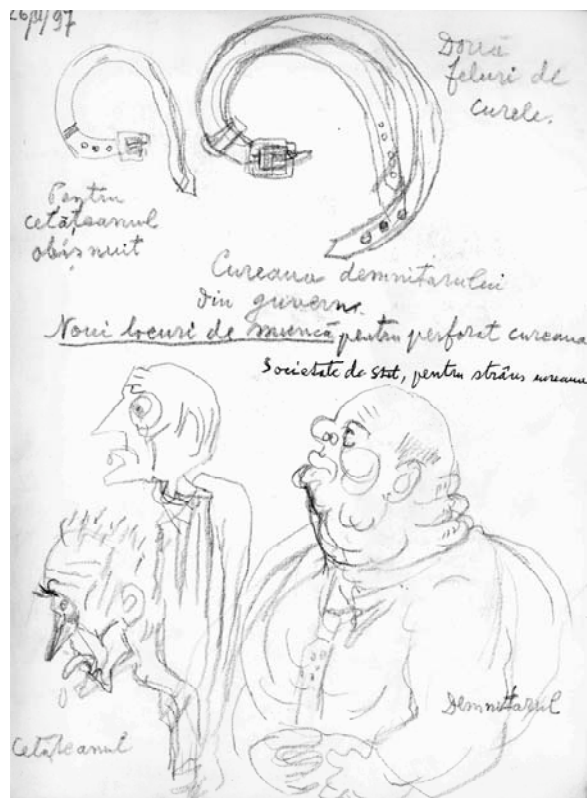 Două
feluri de
curele.
Pentru
cetățeanul
obișnuit
Cureaua demnitarului
din guvern.
Noui locuri de muncă pentru perforat cureaua
Societate de stat, pentru strâns cureaua
Demnitarul
Cetățeanul